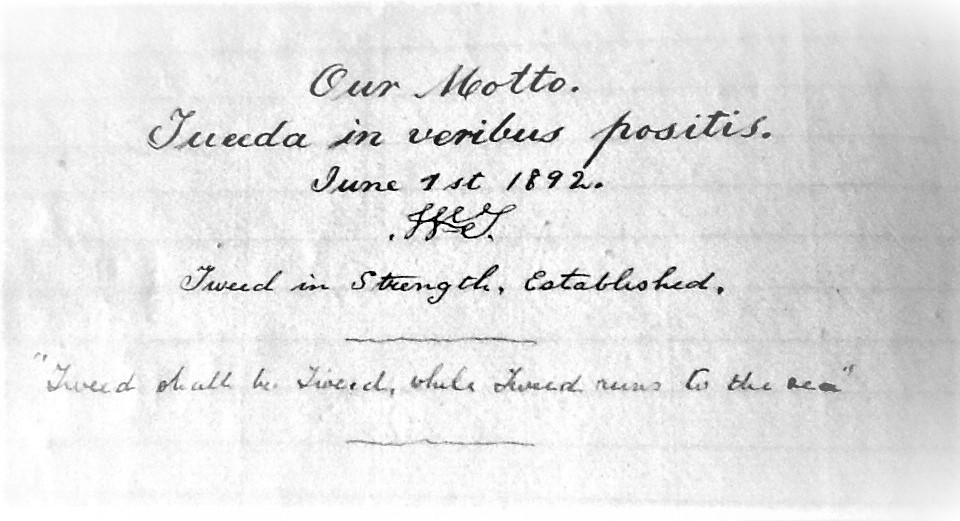 Our Motto.
Tueeda in veribus positis.
June 1st 1892.
Tweed in Strength, Established.
"Tweed shall be Tweed, while Tweed runs to the sea"